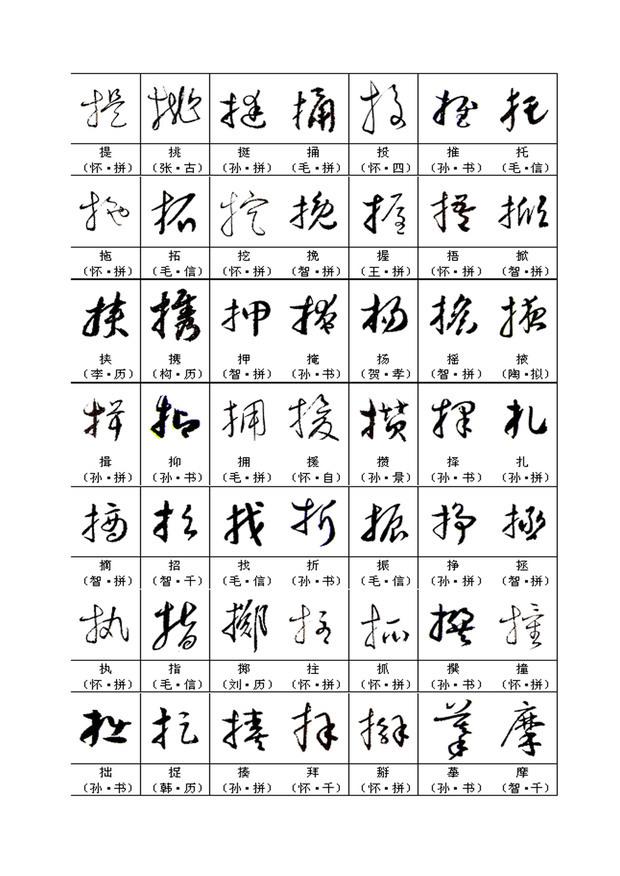 提 挑 挺 捅 投 推 托
（怀·拼） （张·古） （孙·拼） （毛·拼） （怀·四） （孙·书） （毛·信）
拖 拓 挖 挽 握 捂 掀
（怀·拼） （毛·信） （怀·拼） （智·拼） （王·拼） （怀·拼） （智·拼）
挟 携 押 掩 扬 摇 掖
（李·历） （柯·历） （智·拼） （孙·书） （贺·孝） （智·拼） （陶·拟）
揖 抑 拥 援 攒 择 扎
（孙·拼） （孙·书） （毛·拼） （怀·自） （孙·景） （孙·书） （孙·拼）
摘 招 找 折 振 挣 拯
（智·拼） （智·千） （毛·信） （孙·书） （毛·信） （孙·拼） （智·拼）
执 指 掷 拄 抓 撰 撞
（怀·拼） （毛·信） （刘·历） （怀·拼） （怀·拼） （孙·书） （怀·拼）
拙 捉 揍 拜 掰 摹 摩
（孙·书） （韩·历） （孙·拼） （怀·千） （怀·拼） （孙·书） （智·千）